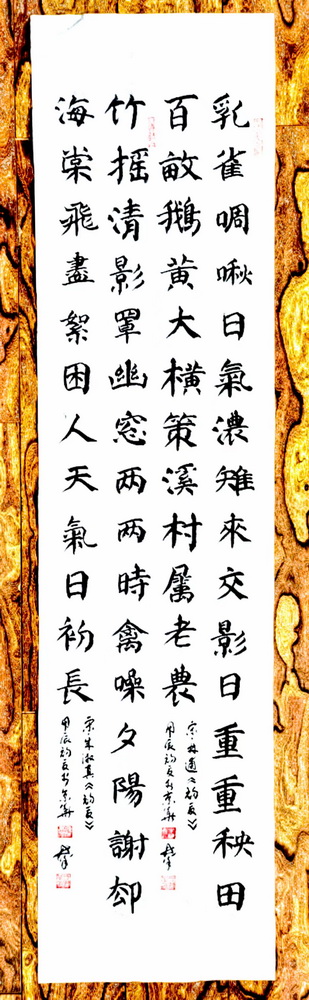 乳雀啁啾日氣濃雉來交影日重重秧田
百畝鵝黄大横策溪村屬老農
宋林逋《初夏》
甲辰初夏於京華
竹摇清影罩幽窓两两時禽噪夕陽謝却
海棠飛盡絮困人天氣日初長
宋朱淑真《初夏》
甲辰初夏於京華